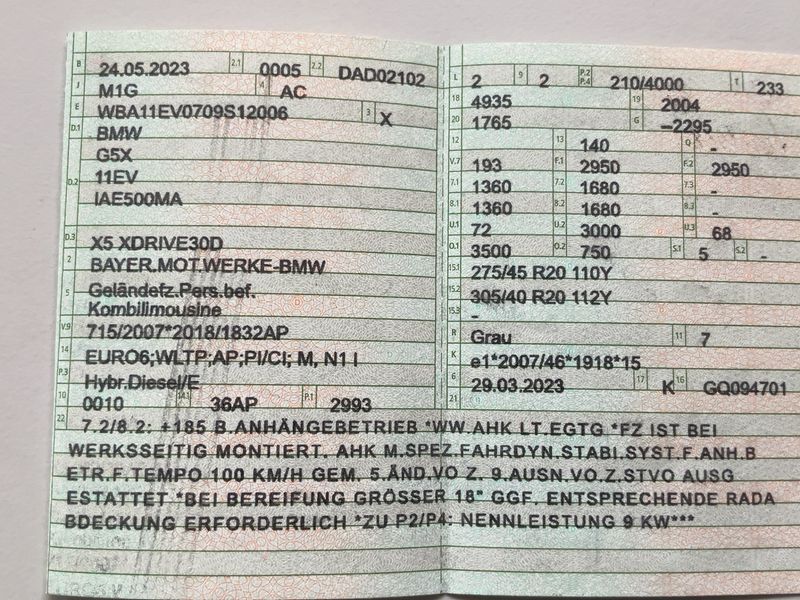 B 24.05.2023 2.1 0005 2.2 DAD02102
J M1G 4 AC
E WBA11EV0709S12006 3 X
D.1 BMW
G5X
D.2 11EV
IAE500MA
D.3 X5 XDRIVE30D
2 BAYER.MOT.WERKE-BMW
5 Geländefz.Pers.bef.
Kombilimousine
V.9 715/2007*2018/1832AP
14 EURO6;WLTP;AP;PI/CI; M, N1 I
P.3 Hybr.Diesel/E
10 0010 14.1 36AP P.1 2993
L 2 9 2 P.2 P.4 210/4000 T 233
18 4935 19 2004
20 1765 G –2295
12 13 140 Q -
V.7 193 F.1 2950 F.2 2950
7.1 1360 7.2 1680 7.3 -
8.1 1360 8.2 1680 8.3 -
U.1 72 U.2 3000 U.3 68
O.1 3500 O.2 750 S.1 5 S.2 -
15.1 275/45 R20 110Y
15.2 305/40 R20 112Y
15.3 -
R Grau 11 7
K e1*2007/46*1918*15
6 29.03.2023 17 K 16 GQ094701
21
22 7.2/8.2: +185 B.ANHÄNGEBETRIEB *WW.AHK LT.EGTG *FZ IST BEI
WERKSSEITIG MONTIERT. AHK M.SPEZ.FAHRDYN.STABI.SYST.F.ANH.B
ETR.F.TEMPO 100 KM/H GEM. 5.ÄND.VO Z. 9.AUSN.VO.Z.STVO AUSG
ESTATTET *BEI BEREIFUNG GRÖSSER 18" GGF. ENTSPRECHENDE RADA
BDECKUNG ERFORDERLICH *ZU P2/P4: NENNLEISTUNG 9 KW***